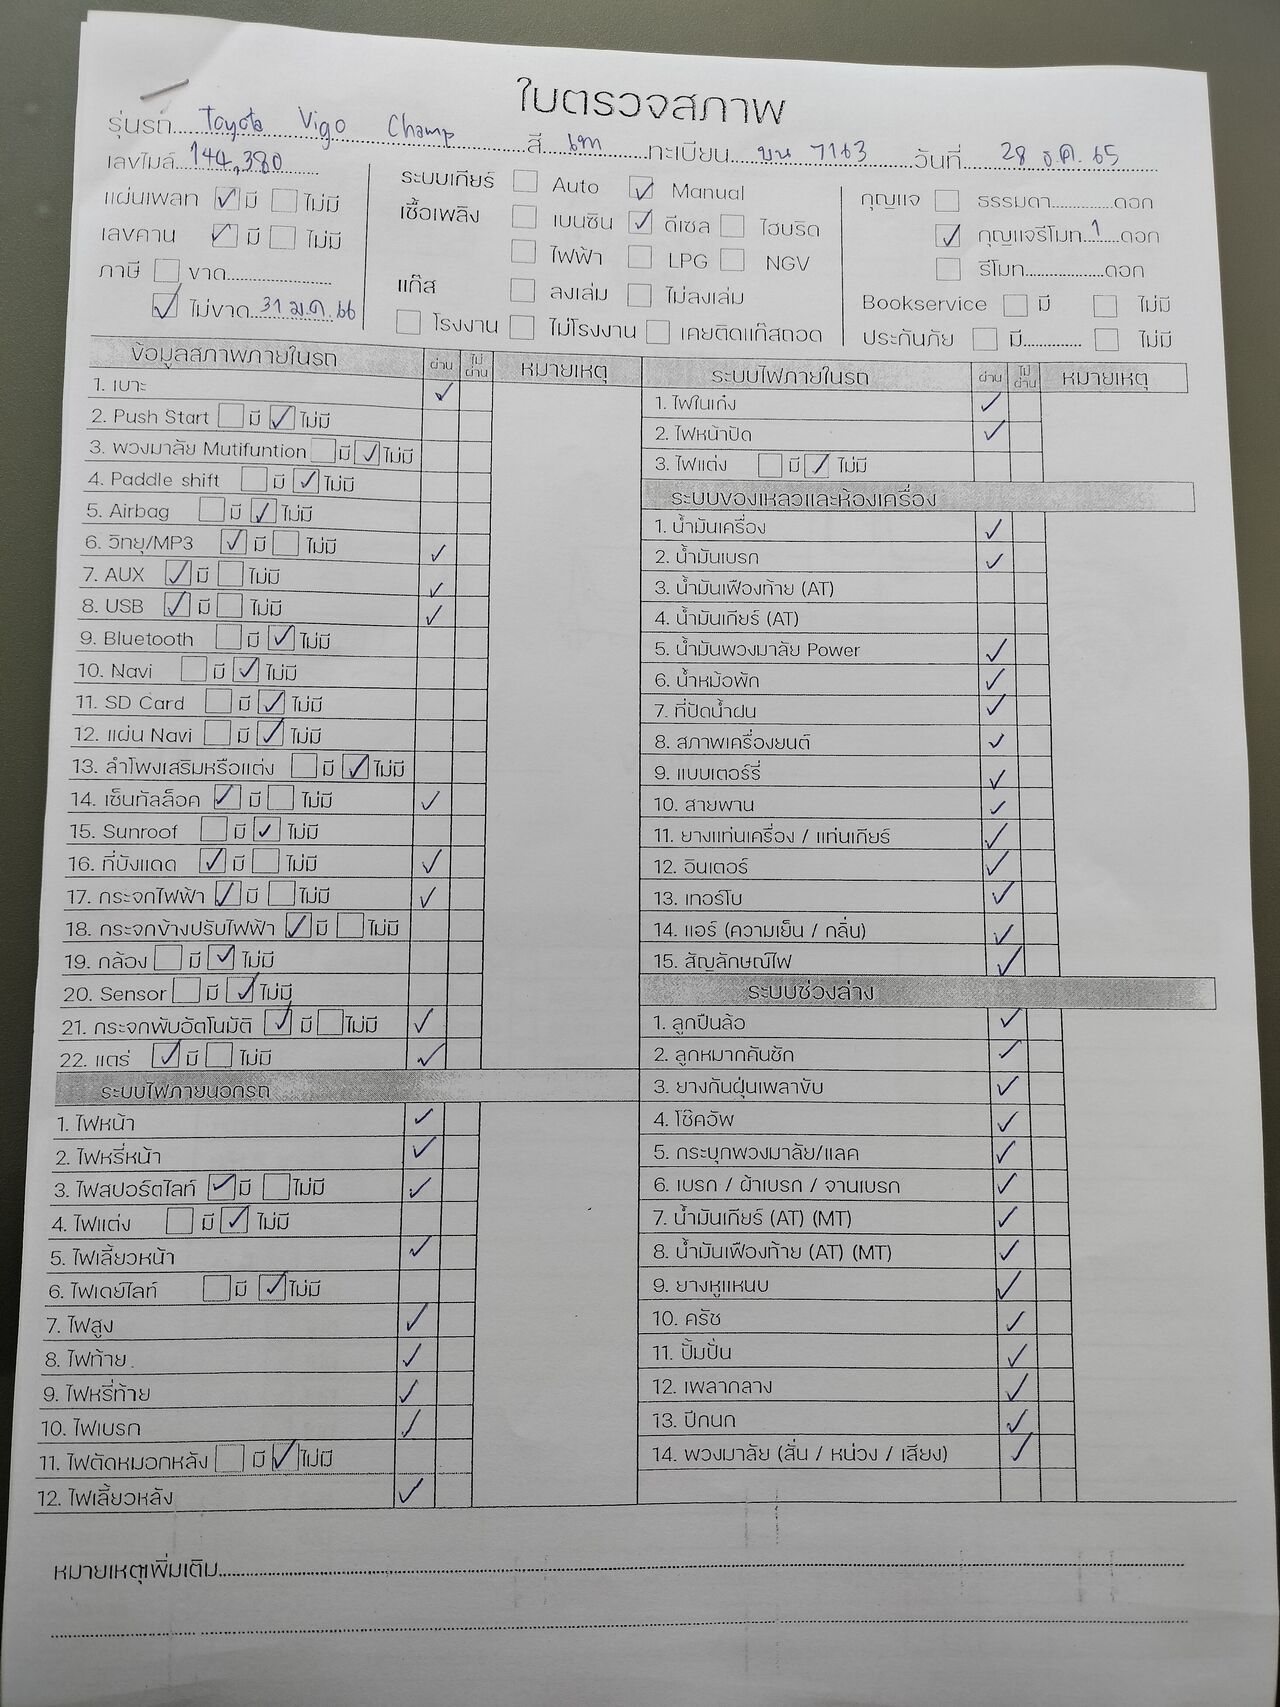 ใบตรวจสภาพ
รุ่นรถ Toyota Vigo Champ สี เทา ทะเบียน บน 7163 วันที่ 28 ธ.ค. 65
เลขไมล์ 144,380
แผ่นเพลท ✓ มี ไม่มี
เลขคาน ✓ มี ไม่มี
ภาษี ขาด
✓ ไม่ขาด 31 ม.ค. 66
ระบบเกียร์ Auto ✓ Manual
เชื้อเพลิง เบนซิน ✓ ดีเซล ไฮบริด
ไฟฟ้า LPG NGV
แก๊ส ลงเล่ม ไม่ลงเล่ม
โรงงาน ไม่โรงงาน เคยติดแก๊สถอด
กุญแจ ธรรมดา ดอก
✓ กุญแจรีโมท 1 ดอก
รีโมท ดอก
Bookservice มี ไม่มี
ประกันภัย มี ไม่มี
ข้อมูลสภาพภายในรถ ผ่าน ไม่ผ่าน หมายเหตุ
1. เบาะ ✓
2. Push Start มี ✓ ไม่มี
3. พวงมาลัย Mutifuntion มี ✓ ไม่มี
4. Paddle shift มี ✓ ไม่มี
5. Airbag มี ✓ ไม่มี
6. วิทยุ/MP3 ✓ มี ไม่มี ✓
7. AUX ✓ มี ไม่มี ✓
8. USB ✓ มี ไม่มี ✓
9. Bluetooth มี ✓ ไม่มี
10. Navi มี ✓ ไม่มี
11. SD Card มี ✓ ไม่มี
12. แผ่น Navi มี ✓ ไม่มี
13. ลำโพงเสริมหรือแต่ง มี ✓ ไม่มี
14. เซ็นทัลล็อค ✓ มี ไม่มี ✓
15. Sunroof มี ✓ ไม่มี
16. ที่บังแดด ✓ มี ไม่มี ✓
17. กระจกไฟฟ้า ✓ มี ไม่มี ✓
18. กระจกข้างปรับไฟฟ้า ✓ มี ไม่มี
19. กล้อง มี ✓ ไม่มี
20. Sensor มี ✓ ไม่มี
21. กระจกพับอัตโนมัติ ✓ มี ไม่มี ✓
22. แตร่ ✓ มี ไม่มี ✓
ระบบไฟภายนอกรถ
1. ไฟหน้า ✓
2. ไฟหรี่หน้า ✓
3. ไฟสปอร์ตไลท์ ✓ มี ไม่มี ✓
4. ไฟแต่ง มี ✓ ไม่มี
5. ไฟเลี้ยวหน้า ✓
6. ไฟเดย์ไลท์ มี ✓ ไม่มี
7. ไฟสูง ✓
8. ไฟท้าย ✓
9. ไฟหรี่ท้าย ✓
10. ไฟเบรก ✓
11. ไฟตัดหมอกหลัง มี ✓ ไม่มี
12. ไฟเลี้ยวหลัง ✓
ระบบไฟภายในรถ ผ่าน ไม่ผ่าน หมายเหตุ
1. ไฟในเก๋ง ✓
2. ไฟหน้าปัด ✓
3. ไฟแต่ง มี ✓ ไม่มี
ระบบของเหลวและห้องเครื่อง
1. น้ำมันเครื่อง ✓
2. น้ำมันเบรก ✓
3. น้ำมันเฟืองท้าย (AT)
4. น้ำมันเกียร์ (AT)
5. น้ำมันพวงมาลัย Power ✓
6. น้ำหม้อพัก ✓
7. ที่ปัดน้ำฝน ✓
8. สภาพเครื่องยนต์ ✓
9. แบบเตอร์รี่ ✓
10. สายพาน ✓
11. ยางแท่นเครื่อง / แท่นเกียร์ ✓
12. อินเตอร์ ✓
13. เทอร์โบ ✓
14. แอร์ (ความเย็น / กลิ่น) ✓
15. สัญลักษณ์ไฟ ✓
ระบบช่วงล่าง
1. ลูกปืนล้อ ✓
2. ลูกหมากคันชัก ✓
3. ยางกันฝุ่นเพลาขับ ✓
4. โช๊คอัพ ✓
5. กระบุกพวงมาลัย/แลค ✓
6. เบรก / ผ้าเบรก / จานเบรก ✓
7. น้ำมันเกียร์ (AT) (MT) ✓
8. น้ำมันเฟืองท้าย (AT) (MT) ✓
9. ยางหูแหนบ ✓
10. ครัช ✓
11. ปั้มปั่น ✓
12. เพลากลาง ✓
13. ปีกนก ✓
14. พวงมาลัย (สั่น / หน่วง / เสียง) ✓
หมายเหตุเพิ่มเติม